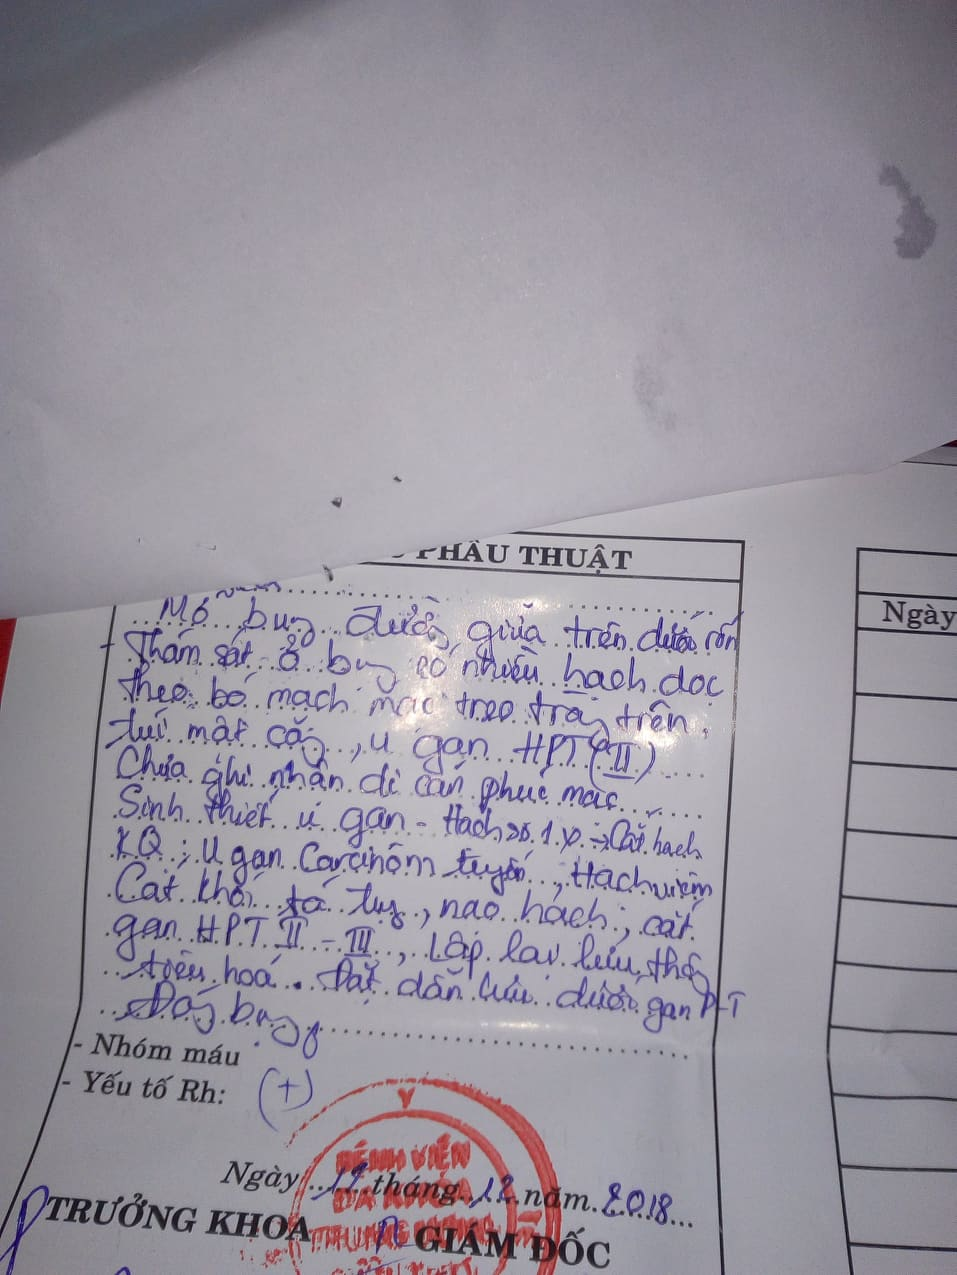 PHẪU THUẬT
Mổ bụng đường giữa trên dưới rốn
- Thám sát ổ bụng có nhiều hạch dọc
theo bó mạch mạc treo tràng trên,
túi mật căng, u gan HPT (II)
Chưa ghi nhận di căn phúc mạc
Sinh thiết u gan - Hạch Cắt hạch
KQ: U gan Carcinôm tuyến, Hạch viêm
Cắt khối tá tụy, nạo hạch, cắt
gan HPT II - III, Lập lại lưu thông
tiêu hoá. Đặt dẫn lưu dưới gan P-T
Đóng bụng
- Nhóm máu
- Yếu tố Rh: (+)
Ngày tháng 12 năm 2018
TRƯỞNG KHOA
GIÁM ĐỐC
BỆNH VIỆN
ĐA KHOA
TRUNG ƯƠNG
Ngày